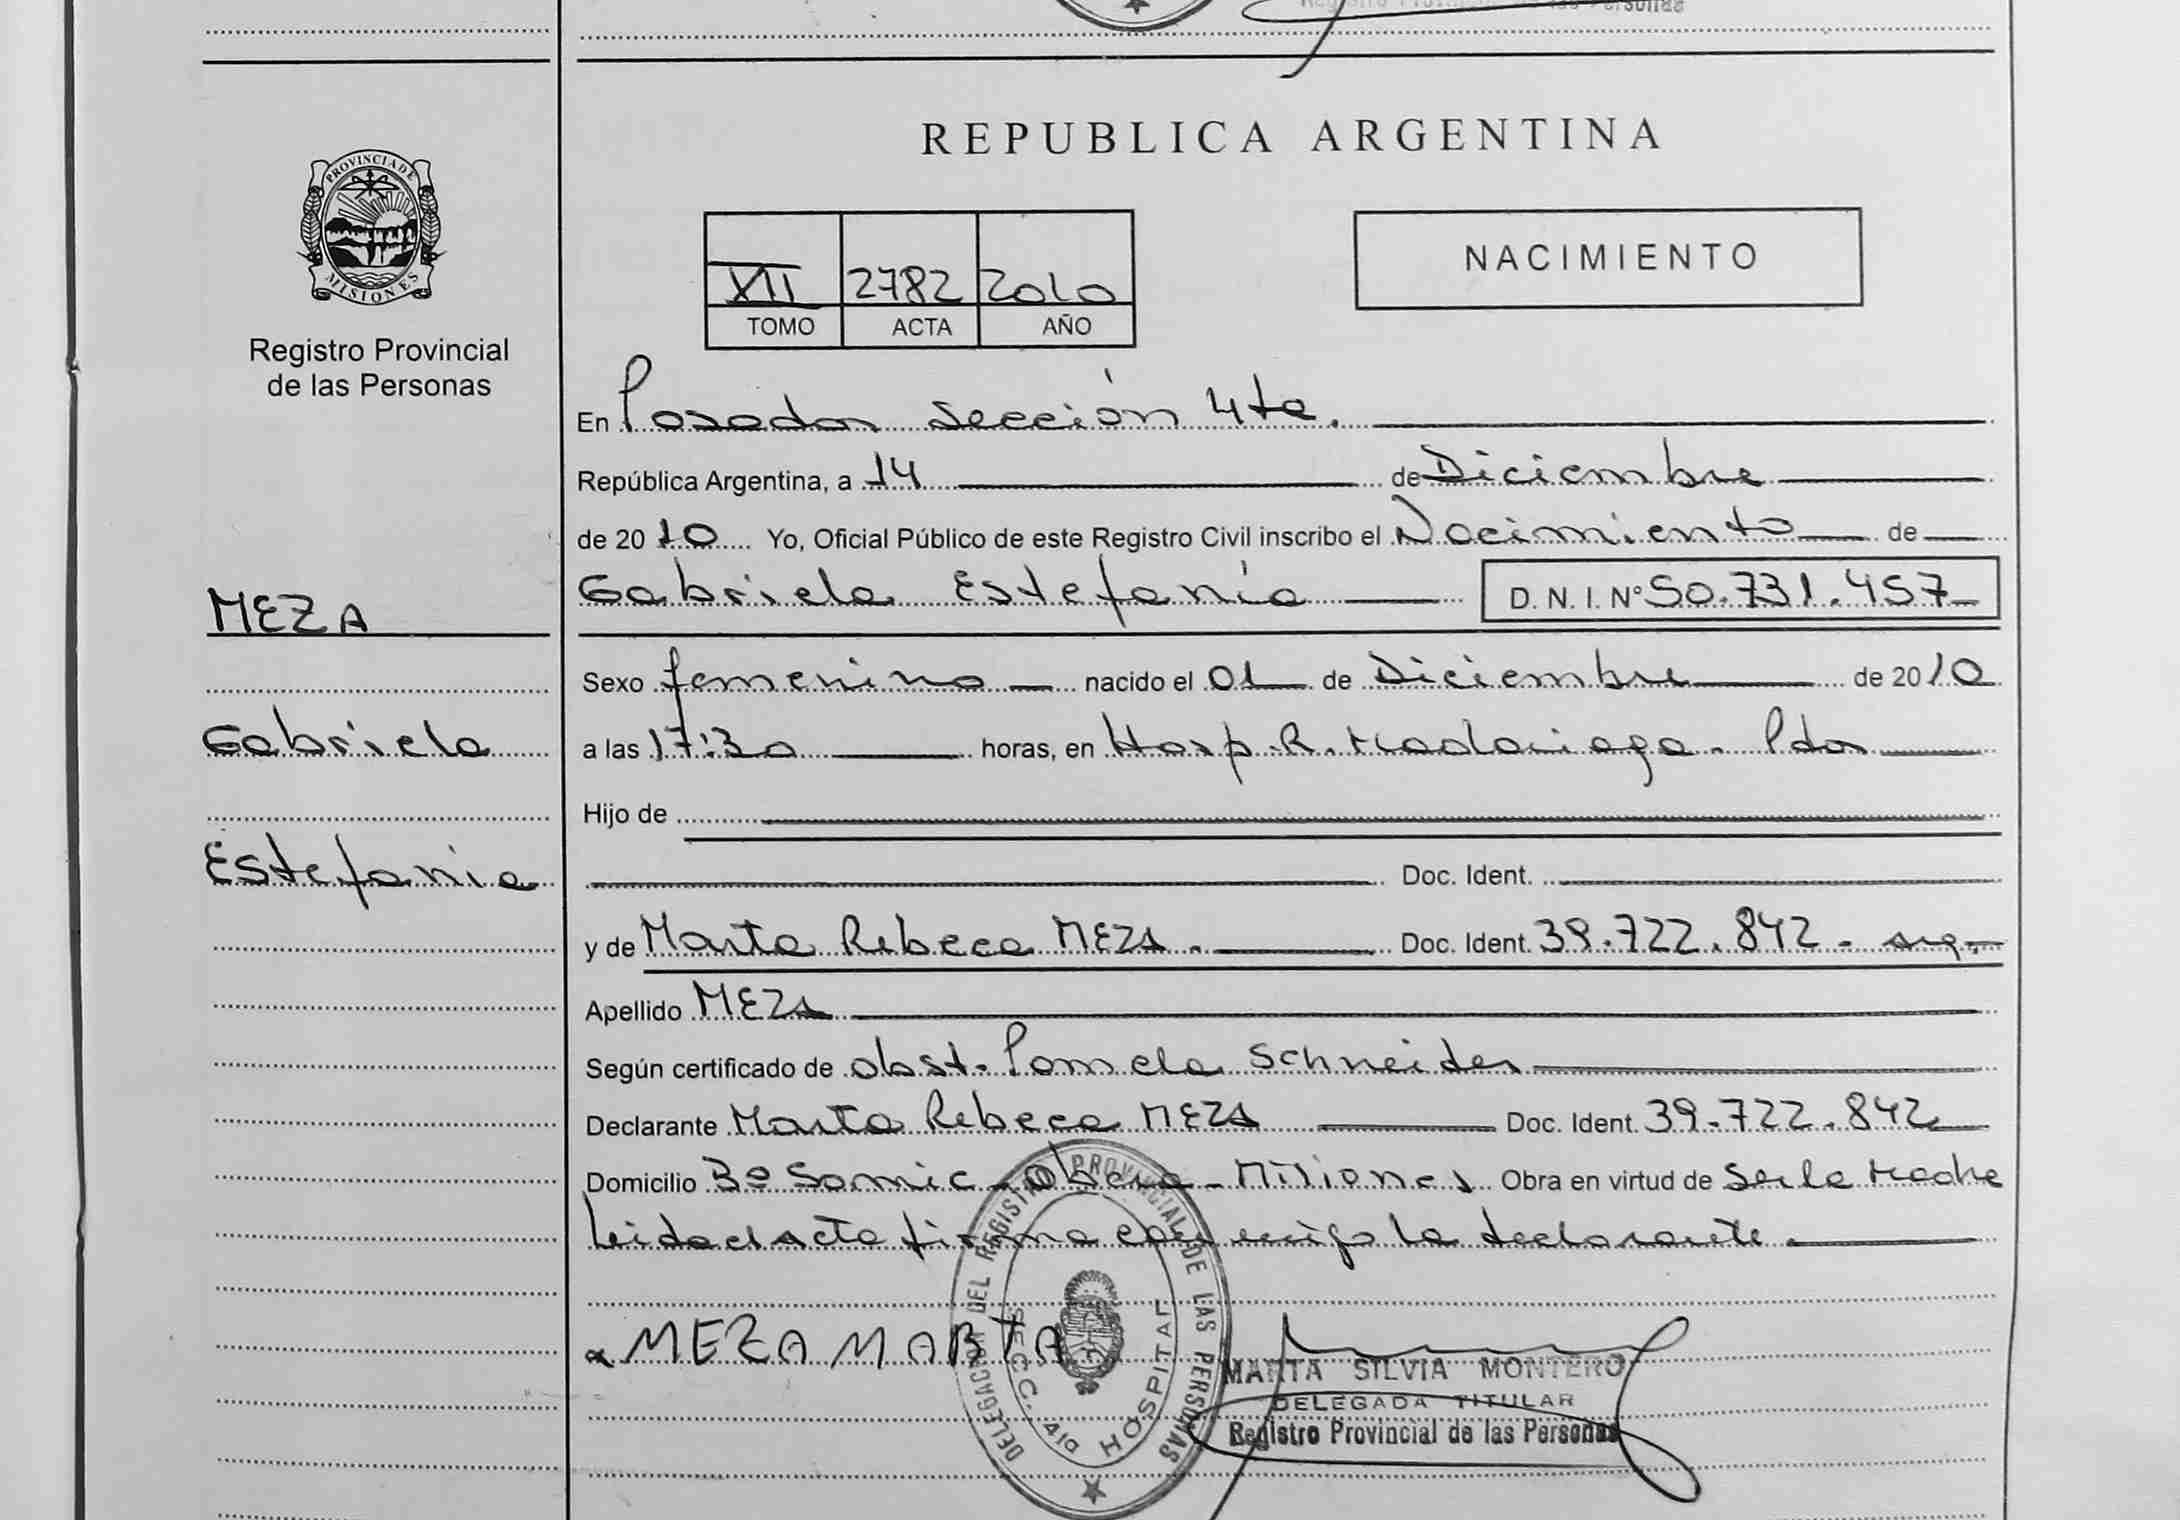 Registro Provincial de las Personas
REPUBLICA ARGENTINA
PROVINCIA DE
MISIONES
Registro Provincial
de las Personas
XII 2782 2010
TOMO ACTA AÑO
NACIMIENTO
En Posadas sección 4ta.
República Argentina, a 14 de Diciembre
de 2010 Yo, Oficial Público de este Registro Civil inscribo el Nacimiento de
Gabriela Estefanía D. N. I. Nº 50.731.457
MEZA
Gabriela
Estefania
Sexo femenino nacido el 01 de Diciembre de 2010
a las 17:30 horas, en Hosp. R. Madariaga - Pdas
Hijo de
Doc. Ident.
y de Marta Rebeca MEZA. Doc. Ident. 39.722.842 - arg.-
Apellido MEZA
Según certificado de obst. Pamela Schneider
Declarante Marta Rebeca MEZA Doc. Ident. 39.722.842
Domicilio Bº Samic - Oberá - Misiones Obra en virtud de Ser la Madre
Leida el acta firma conmigo la declarante.
MEZA MARTA
DELEGACION DEL REGISTRO PROVINCIAL DE LAS PERSONAS
SECC. 4ta HOSPITAL
MARTA SILVIA MONTERO
DELEGADA TITULAR
Registro Provincial de las Personas